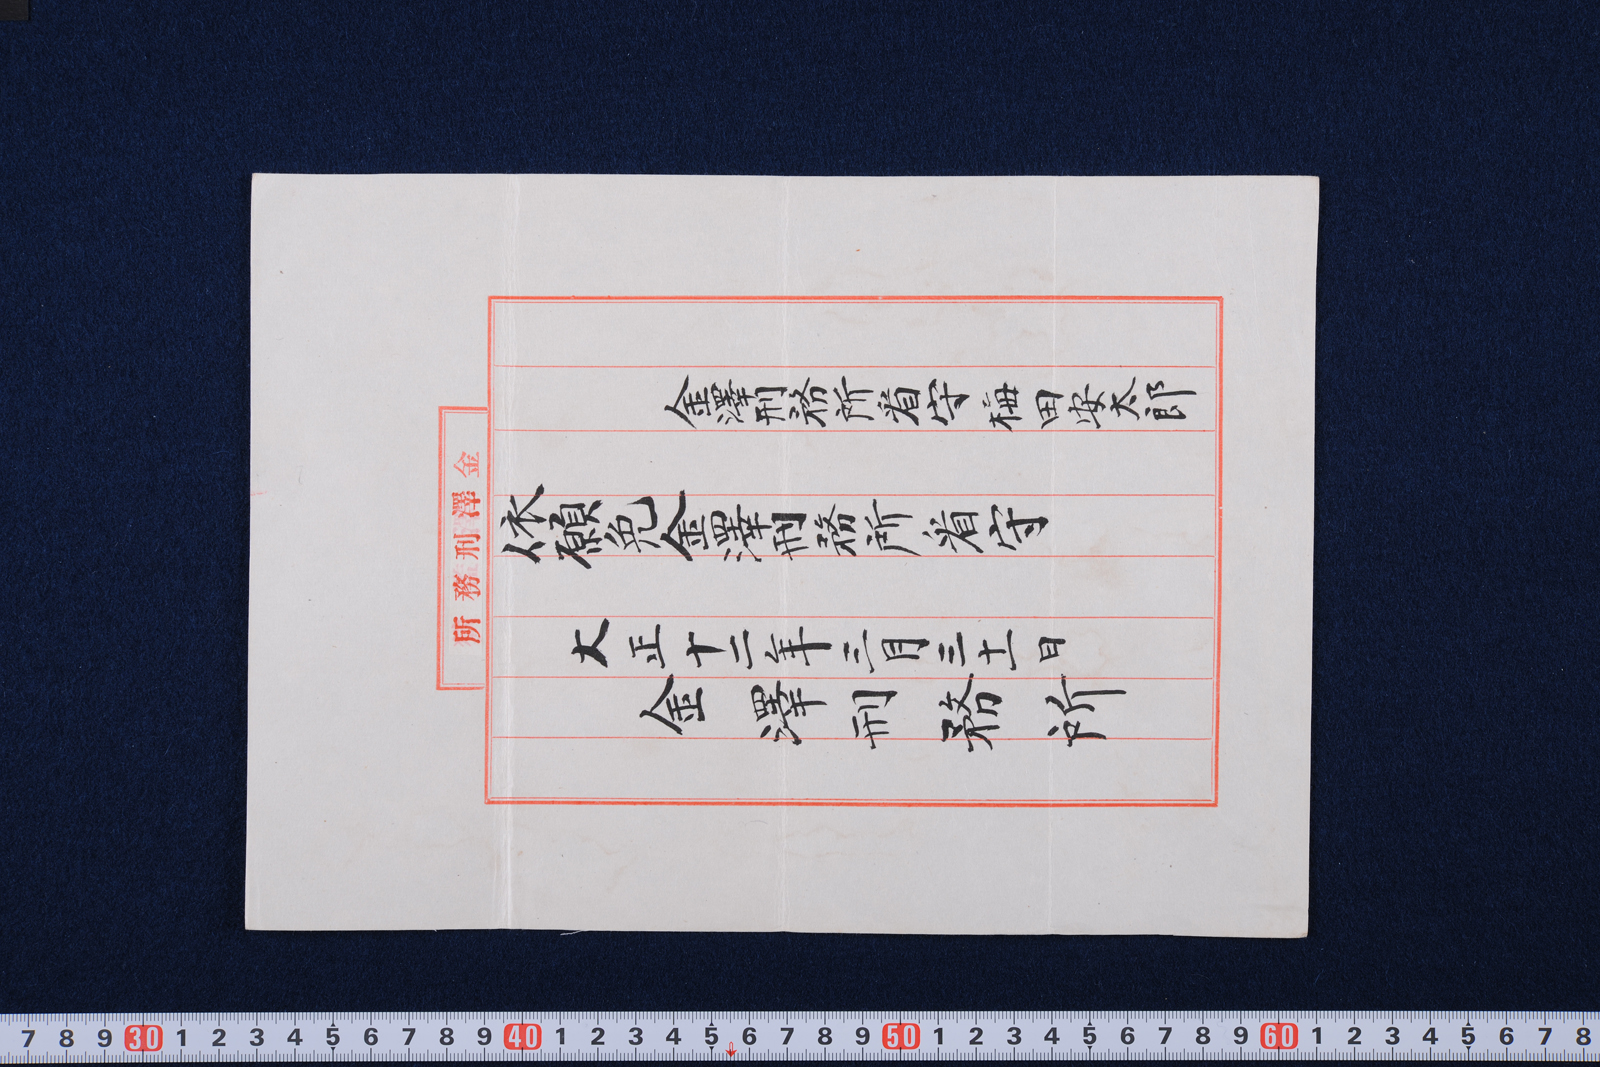 金澤刑務所看守梅田安太郎
依願免金澤刑務所看守
大正十二年三月三十一日
金澤刑務所
金澤刑務所
7 8 9 30 1 2 3 4 5 6 7 8 9 40 1 2 3 4 5 6 7 8 9 50 1 2 3 4 5 6 7 8 9 60 1 2 3 4 5 6 7 8